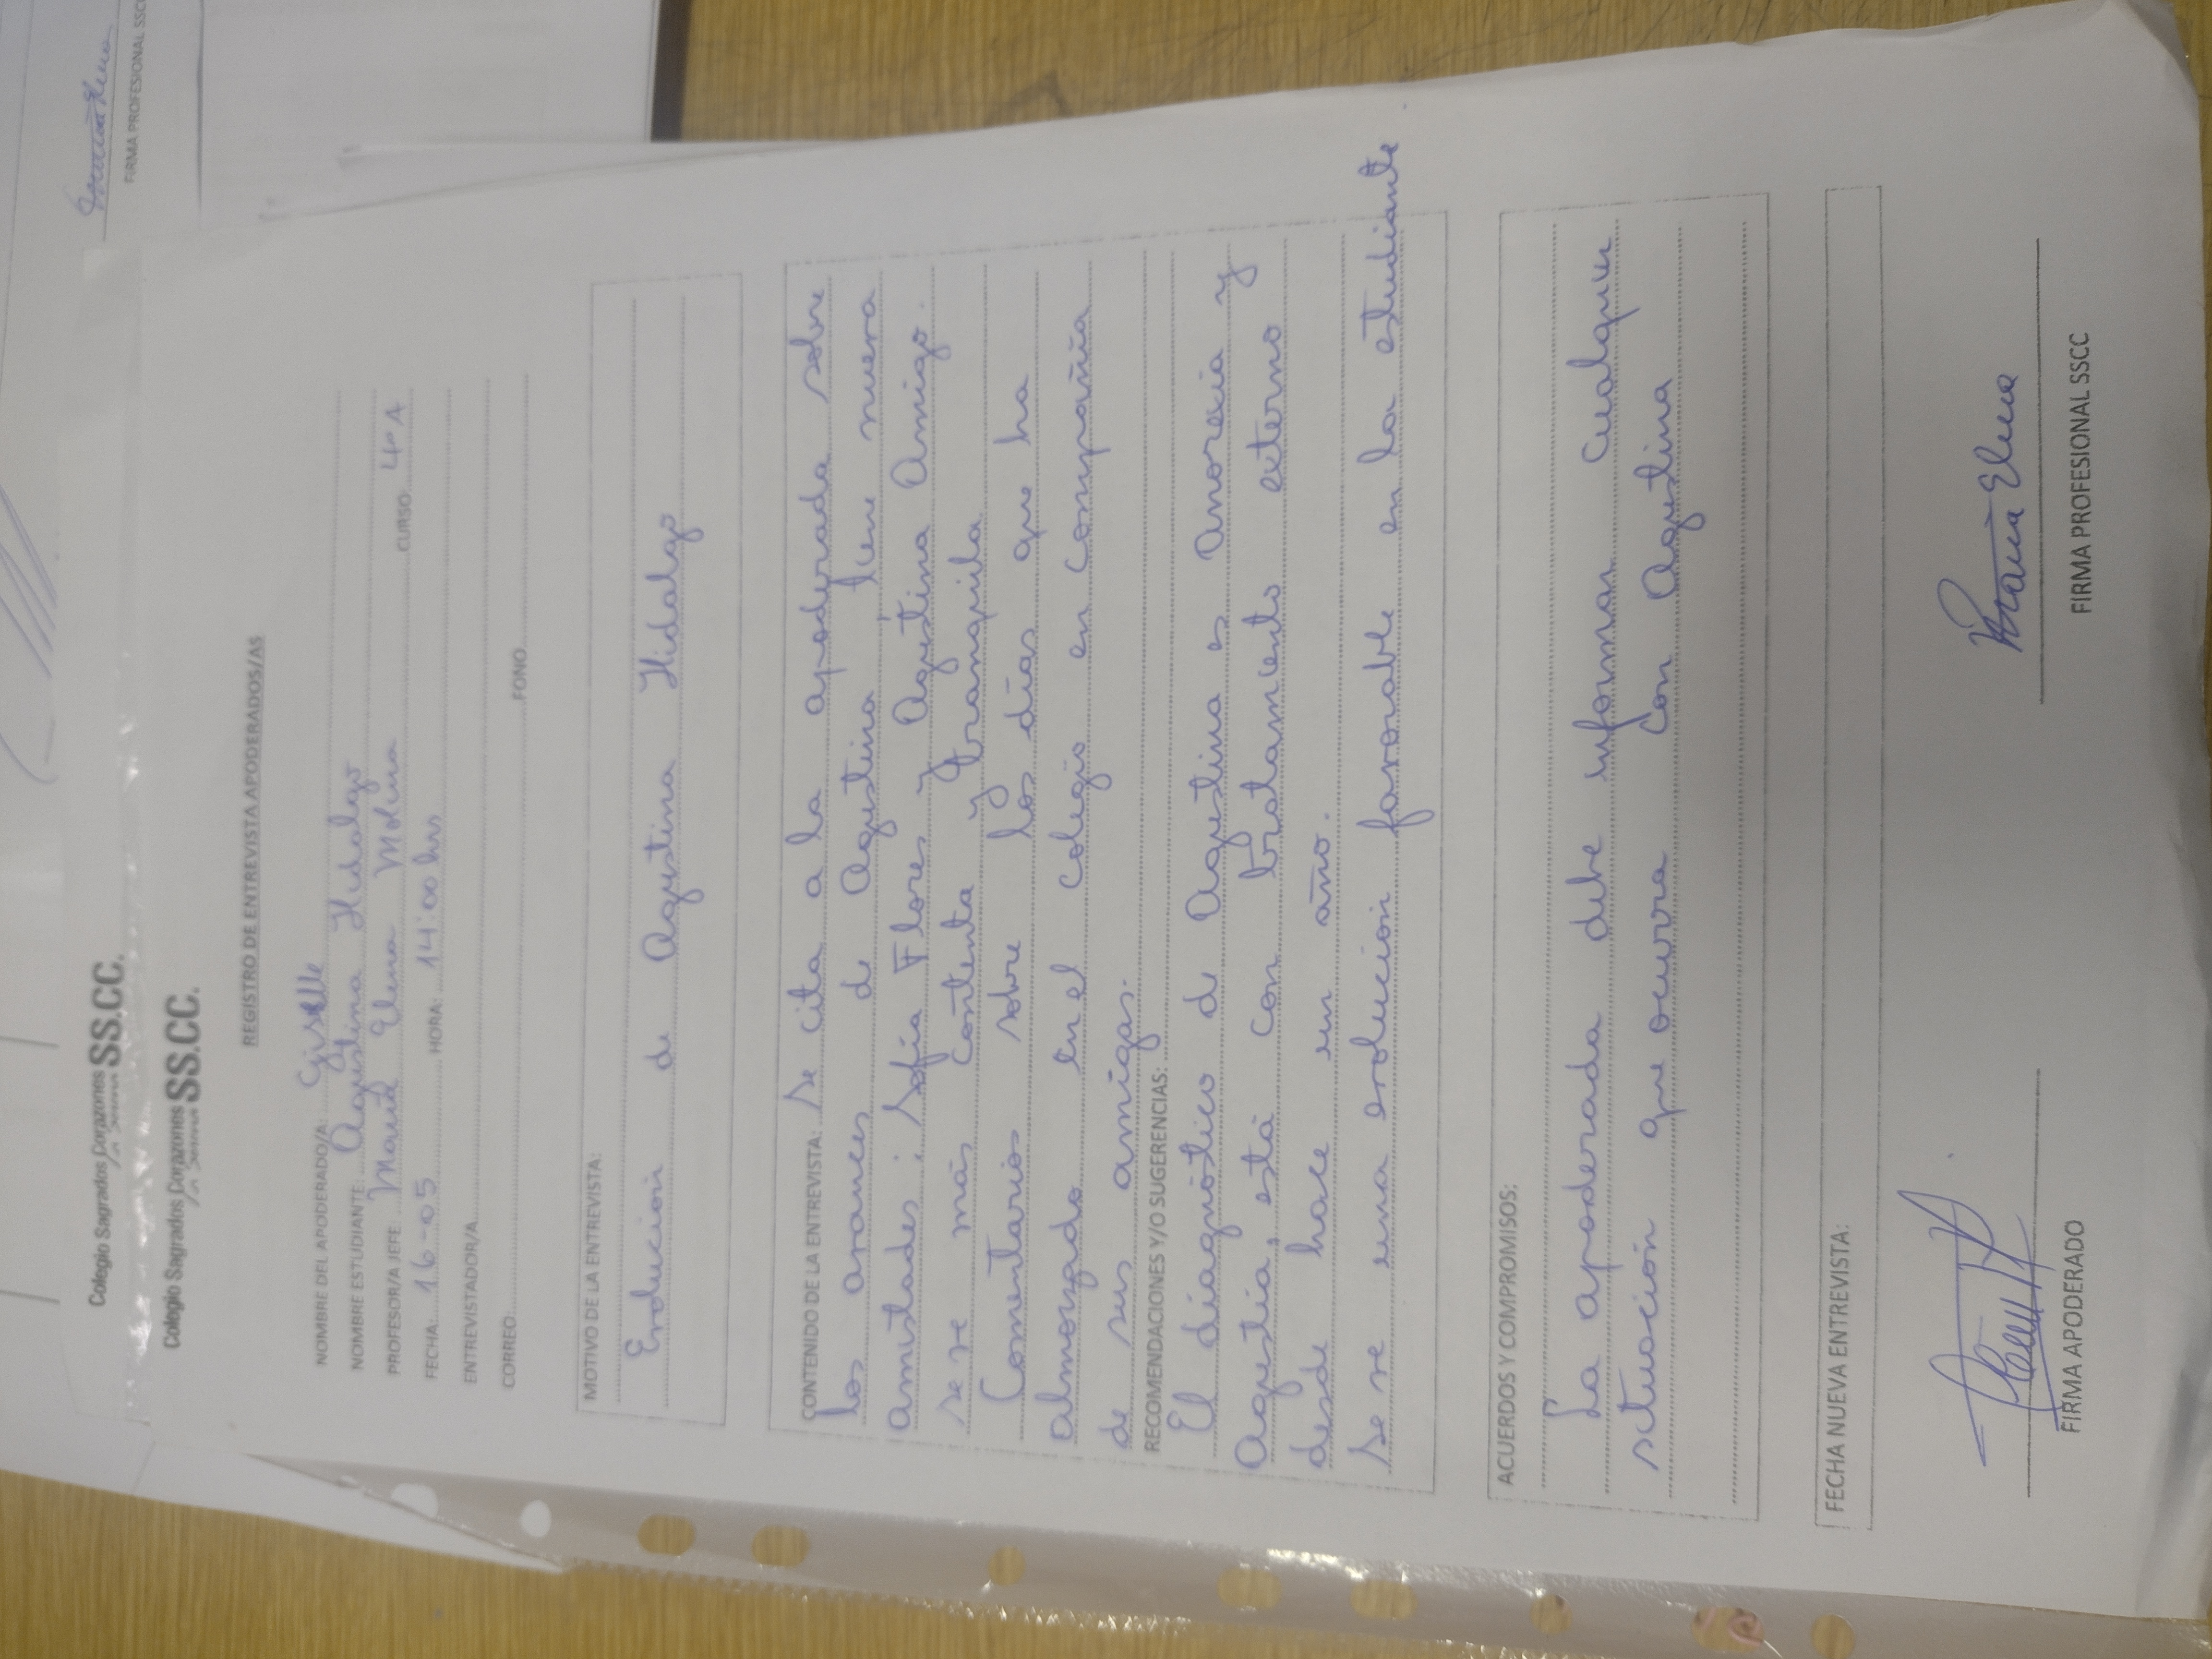 FIRMA PROFESIONAL SSCC
Colegio Sagrados Corazones SS.CC.
Colegio Sagrados Corazones SS.CC.
REGISTRO DE ENTREVISTA APODERADOS/AS
NOMBRE DEL APODERADO/A: Giselle
NOMBRE ESTUDIANTE: Agustina Hidalgo
PROFESOR/A JEFE: María Elena Molina CURSO: 4°A
FECHA: 16-05 HORA: 14:00 hrs
ENTREVISTADOR/A
CORREO: FONO
MOTIVO DE LA ENTREVISTA:
Evolución de Agustina Hidalgo
CONTENIDO DE LA ENTREVISTA: Se cita a la apoderada sobre
los avances de Agustina, tiene nueva
amistades: Sofía Flores y Agustina Amigo.
se ve más contenta y tranquila.
Comentarios sobre los días que ha
almorzado en el colegio en compañía
de sus amigas.
RECOMENDACIONES Y/O SUGERENCIAS:
El diagnóstico de Agustina es Anorexia y
Agustia, está con tratamiento externo
desde hace un año.
Se ve una evolución favorable en la estudiante
ACUERDOS Y COMPROMISOS:
La apoderada debe informar cualquier
situación que ocurra con Agustina
FECHA NUEVA ENTREVISTA:
María Elena
FIRMA APODERADO FIRMA PROFESIONAL SSCC